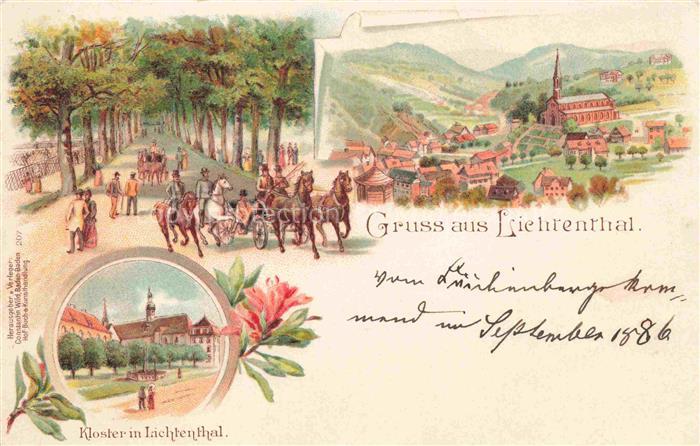 Gruss aus Lichtenthal.
vom
mend im September 1886
Kloster in Lichtenthal.
Herausgeber u. Verleger:
Constantin Wild, Baden-Baden
Hof Buch- u. Kunsthandlung
207